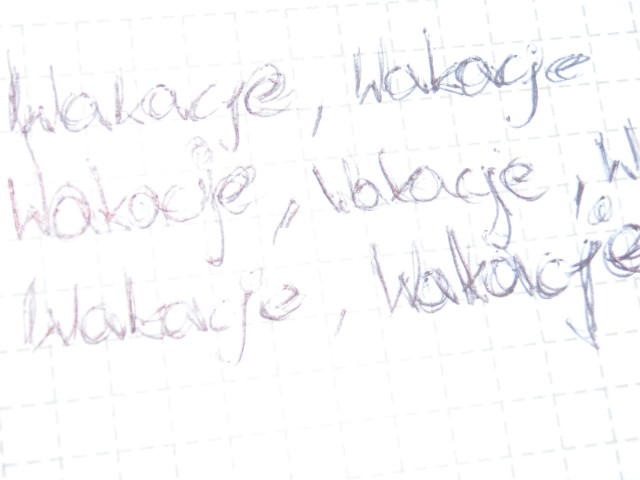 Wakacje, Wakacje
Wakacje, Wakacje, W
Wakacje, Wakacje